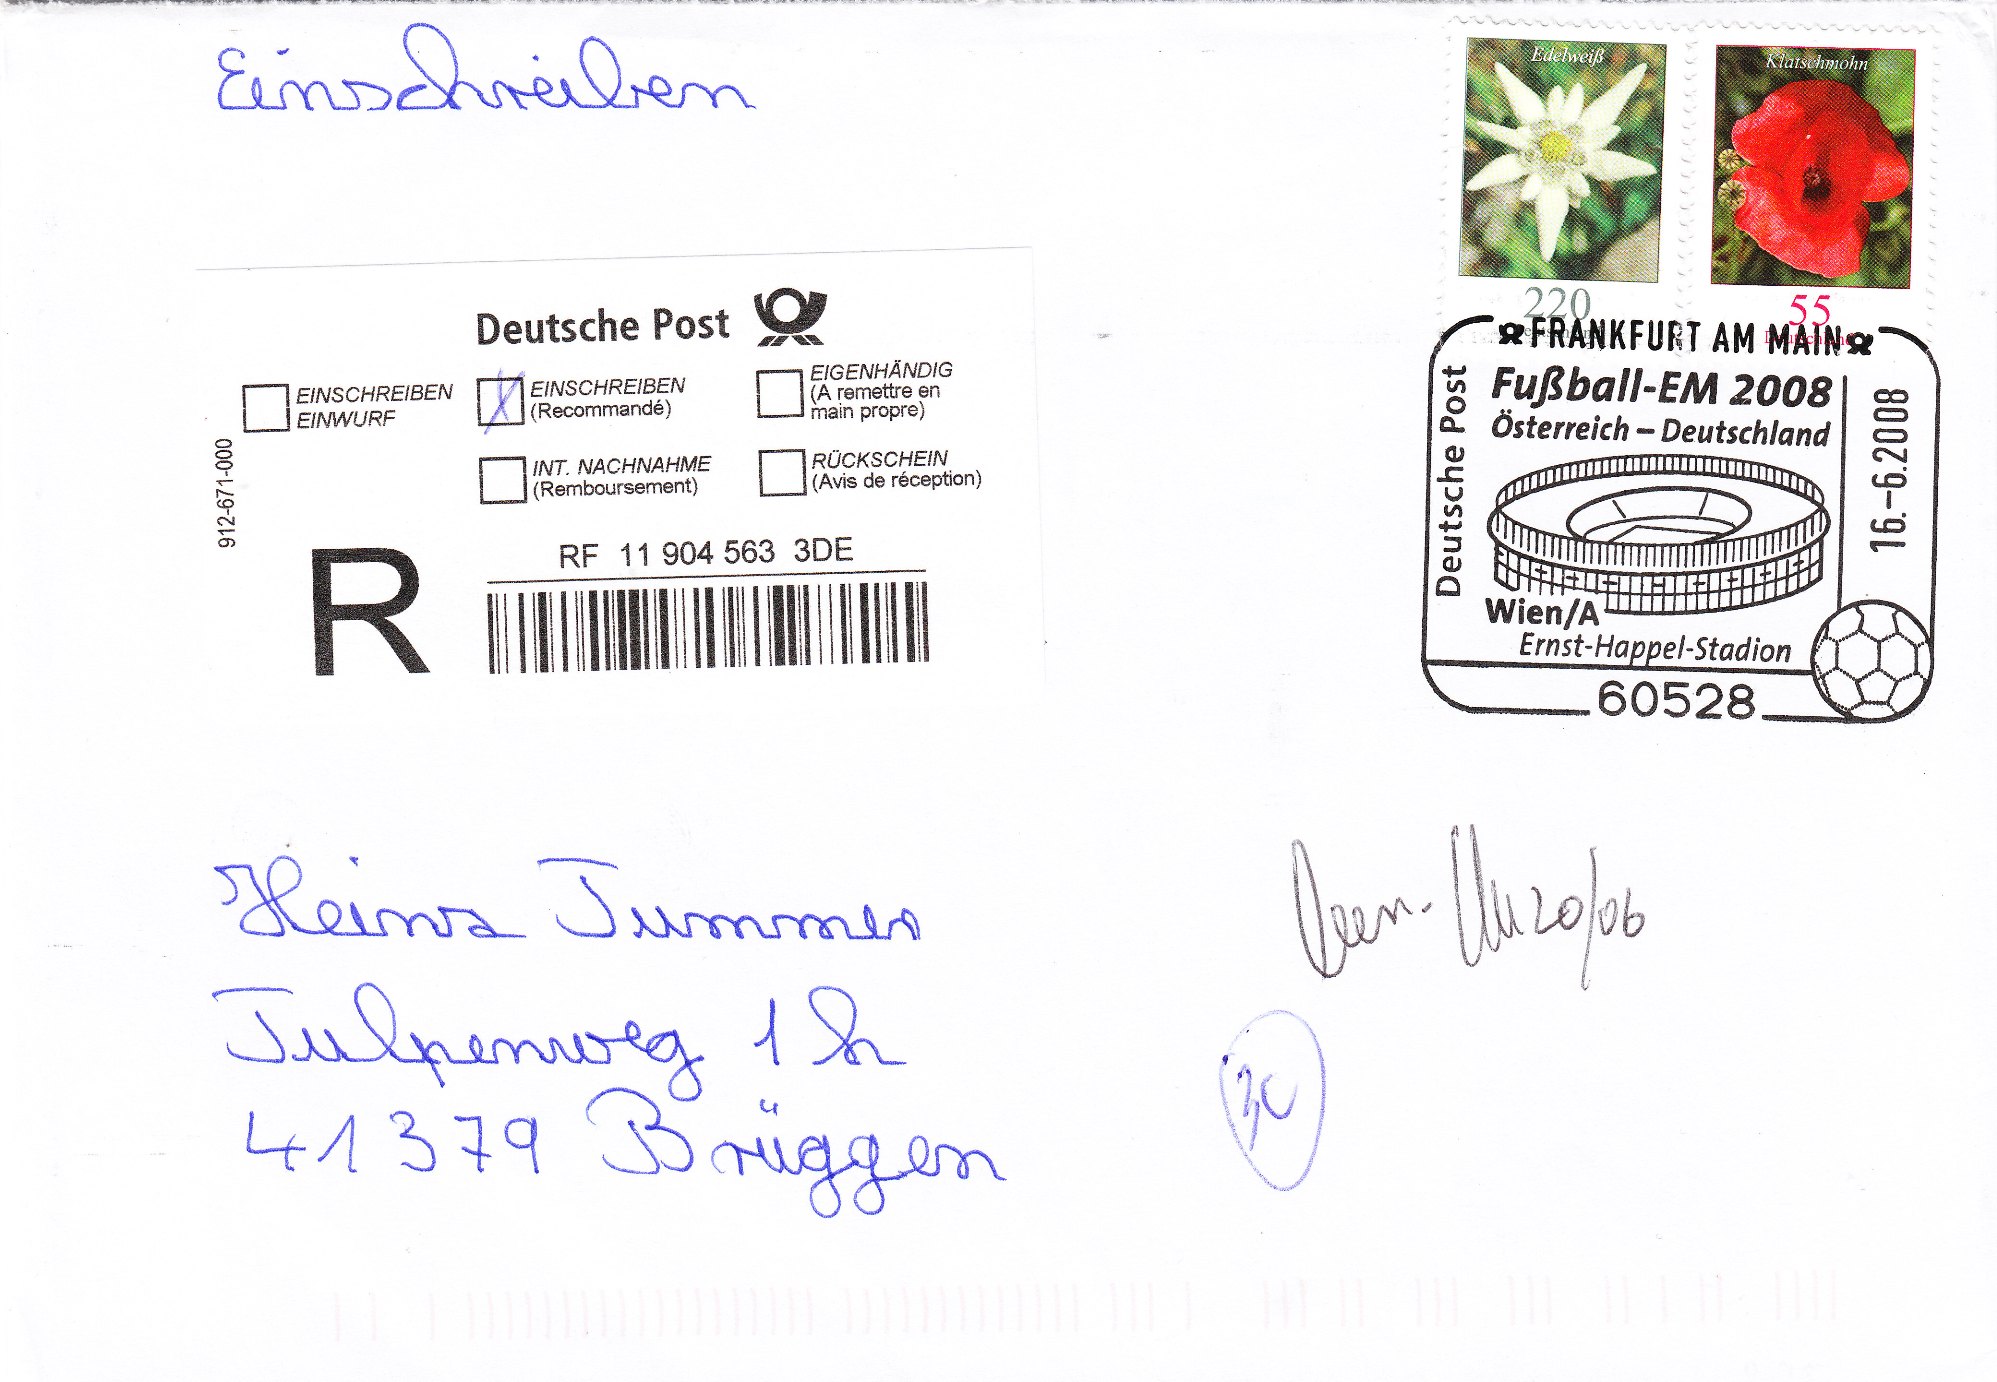 Einschreiben
Edelweiß
220
Klatschmohn
55
Deutschland
FRANKFURT AM MAIN
Deutsche Post
Fußball-EM 2008
Österreich – Deutschland
16.–6.2008
Wien/A
Ernst-Happel-Stadion
60528
Deutsche Post
EINSCHREIBEN
EINWURF
EINSCHREIBEN
(Recommandé)
EIGENHÄNDIG
(A remettre en
main propre)
INT. NACHNAHME
(Remboursement)
RÜCKSCHEIN
(Avis de réception)
912-671-000
R
RF 11 904 563 3DE
Heinz Tummes
Tulpenweg 1 h
41379 Brüggen
20/06